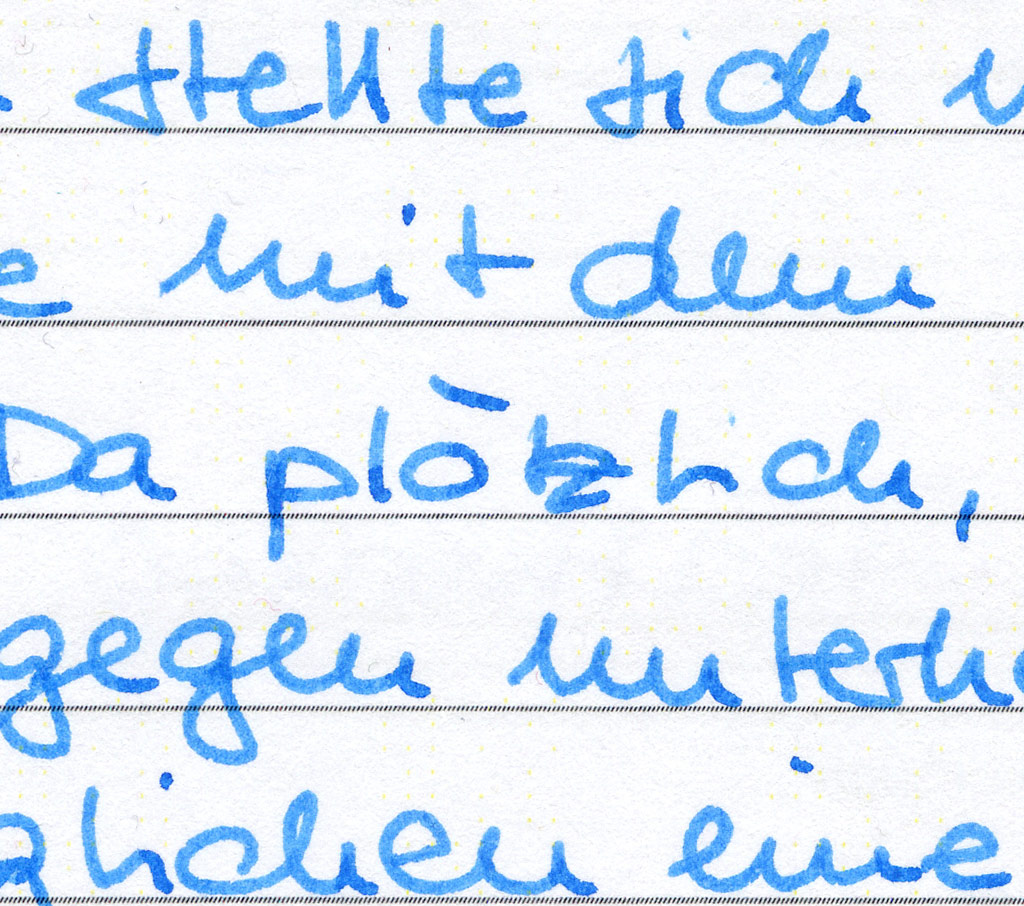 stellte sich
mit dem
Da plötzlich,
gegen unterh
glichen eine